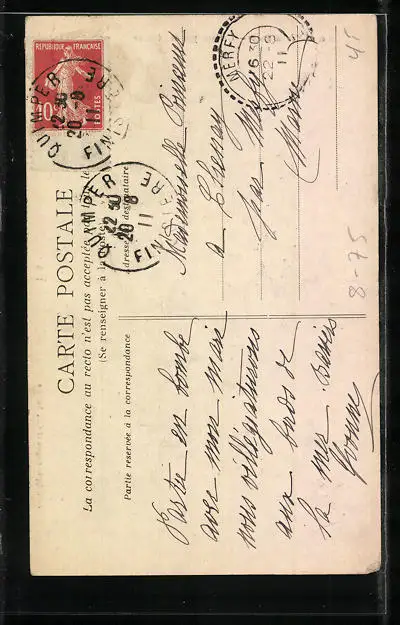 CARTE POSTALE
La correspondance au recto n'est pas acceptée
(Se renseigner à la Poste)
Partie réservée à la correspondance
Adresse du destinataire
RÉPUBLIQUE FRANÇAISE
10
POSTES
QUIMPER
22 30
20 -8
11
FINISTERE
QUIMPER
22 30
20 8
11
FINISTERE
MERFY
16 30
22 -8
11
Mademoiselle
à Chenay
par Merfy
Marne
Partie en bombe
avec mon mari
nous villégiaturons
aux bords de
la mer. Baisers
Yvonne
8-75
45